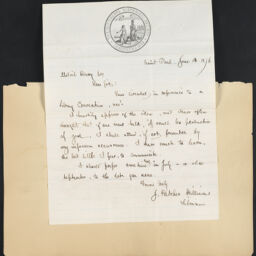 Saint Paul, June 1876
Melvil Dewey Esq
Dear Sir,
Your circular, in reference to a
Library Convention, rec'd
I heartily approve of the idea, and have often
thought that if one were held, it would be productive
of good. I shall attend, if not prevented by
any unforeseen occurrence. I have much to learn,
but little I fear, to communicate.
I should prefer sometime in July or else
September, to the date you name.
Yours truly
J. Fletcher Williams
Librarian